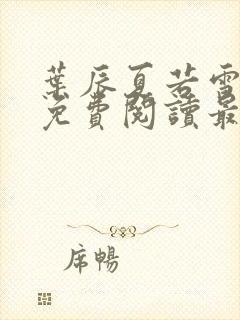 葉辰夏若雪
免費閱讀最
席暢